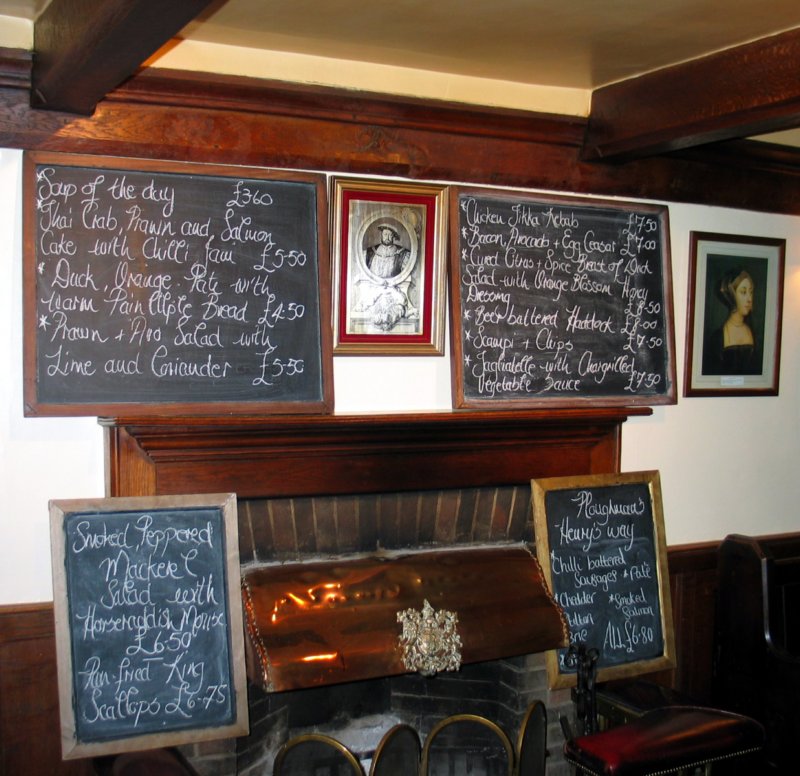 *Soup of the day £3.60
*Thai Crab, Prawn and Salmon
Cake with Chilli Jam £5.50
*Duck, Orange Pate with
warm Pain Bread £4.50
*Prawn + Avo Salad with
Lime and Coriander £5.50
*Chicken Tikka Kebab £7.50
*Bacon, Avocado + Egg Ceasar £7.00
*Cured Citrus + Spice Breast of Duck
Salad with Orange Blossom Honey
Dressing £8.50
*Beer battered Haddock £8.00
*Scampi + Chips £7.50
*Tagliatelle with Chargrilled
Vegetable Sauce £7.50
Smoked, Peppered
Mackerel
Salad with
Horseraddish Mousse
£6.50
Pan-fried King
Scallops £6.75
Ploughman's
Henry's way
*Chilli battered
Sausages *Pate
*Chedder *Smoked
Salmon
ALL £6.80